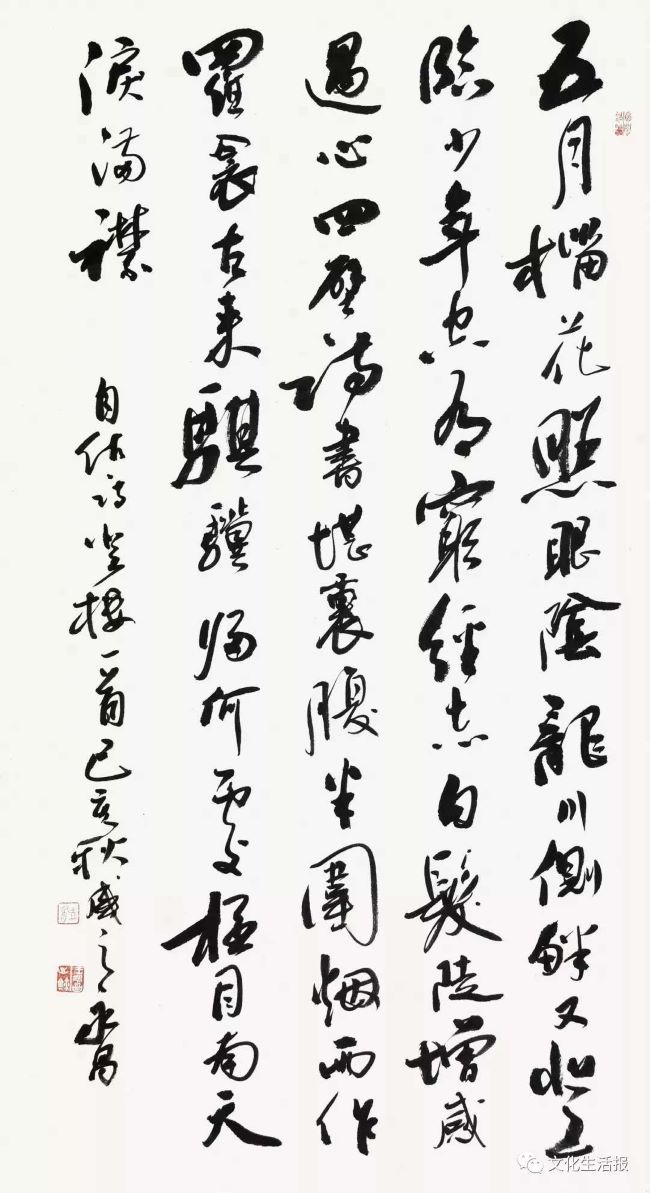 五月榴花照眼陰龍川側畔又登
臨少年空有窮經志白髮陡增感
遇心四壁詩書堪裹腹半圍烟雨作
羅衾古來騏驥歸何處極目南天
淚滿襟
自作詩登樓一首己亥秋盛之 永昌
文化生活报